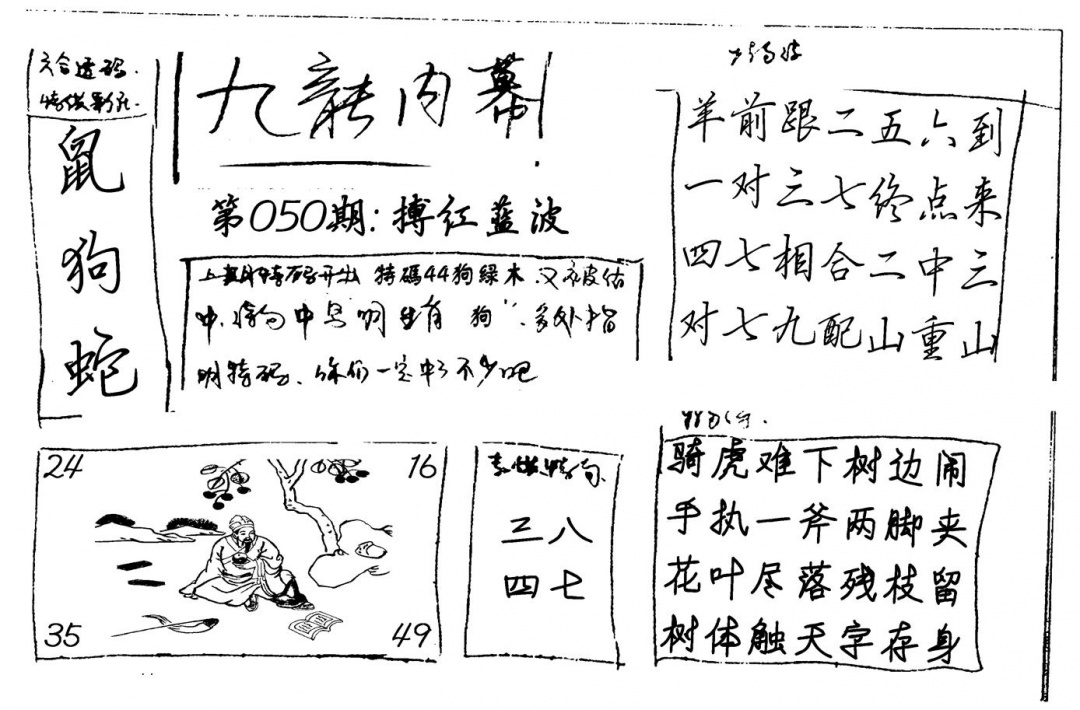 六合透码.
九龍内幕
鼠
狗
蛇
第050期: 搏红蓝波
上期特码开出 特碼44狗绿木.又被估
中. 中 明 有 狗". 多处指
明特码、你们一定中了不少吧
羊前跟二五六到
一对三七终点来
四七相合二中三
对七九配山重山
24
16
35
49
三八
四七
骑虎难下树边闹
手执一斧两脚夹
花叶尽落残枝留
树体触天字存身